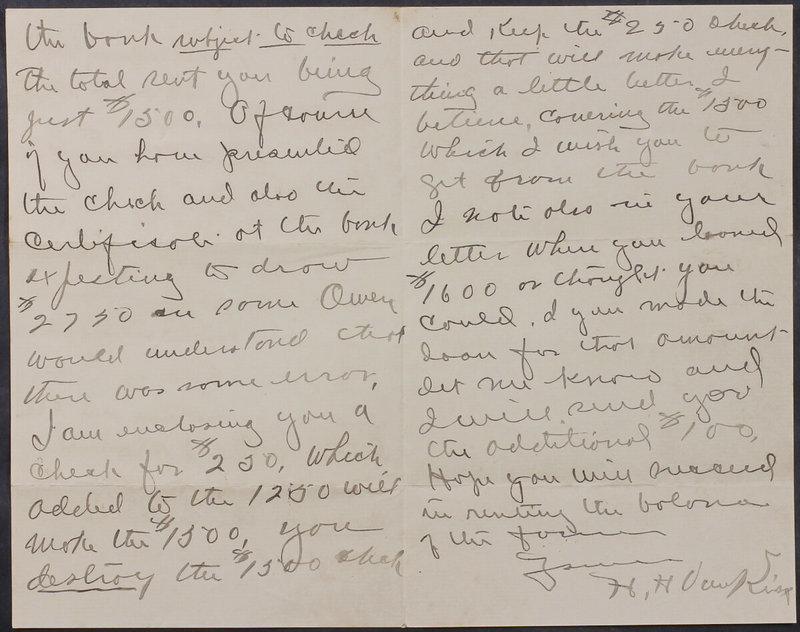 the bank subject to check
the total sent you being
just $1500. Of course
if you have presented
the check and also the
certificate at the bank
expecting to draw
$2750 in some Owen
would understand that
there was some error,
I am enclosing you a
check for $250, which
added to the 1250 will
make the $1500, you
destroy the $1500 check
and keep the $250 check,
and that will make every-
thing a little better I
believe, covering the $1500
which I wish you to
get from the bank
I note also in your
letter when you loaned
$1600 or thought you
could. If you made the
loan for that amount
let me know and
I will send you
the additional $100,
Hope you will succeed
in renting the balance
of the farm
Yours
H. H Van